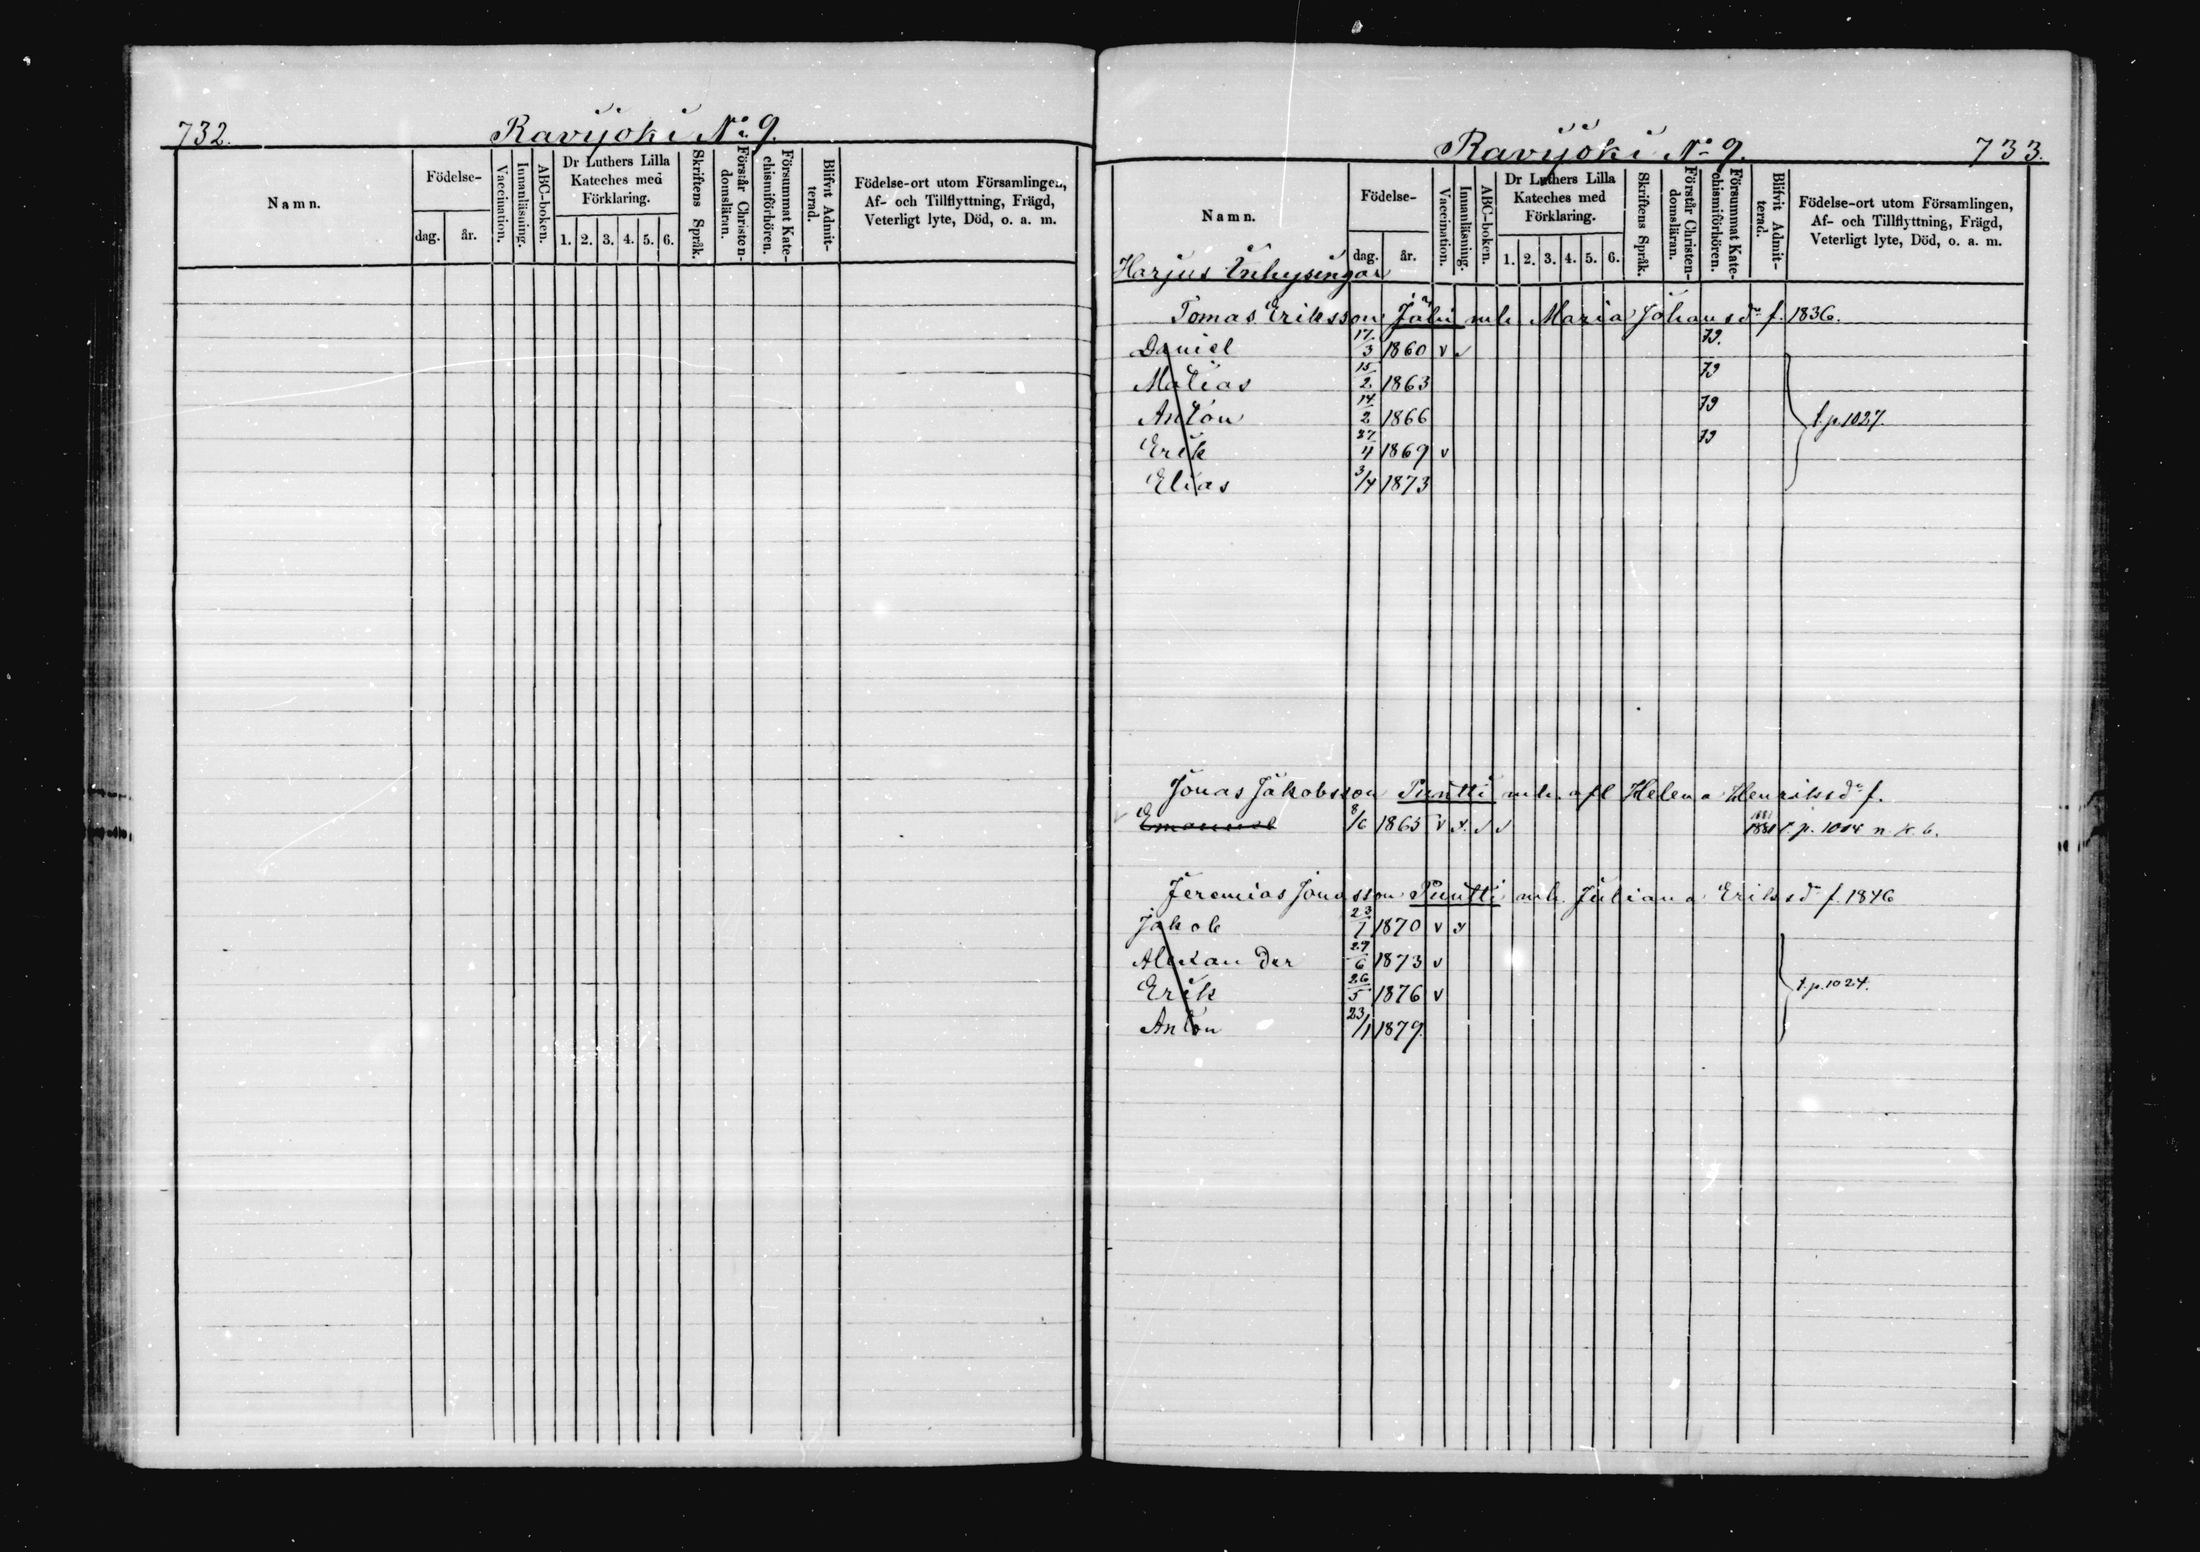 732.
Ravijoki No 9.
Namn.
Födelse-
dag. år.
Vaccination.
Innanläsning.
ABC-boken.
Dr Luthers Lilla
Kateches med
Förklaring.
1. 2. 3. 4. 5. 6.
Skriftens Språk.
Förstår Christen-
domsläran.
Försummat Kate-
chismiförhören.
Blifvit Admit-
terad.
Födelse-ort utom Församlingen,
Af- och Tillflyttning, Frägd,
Veterligt lyte, Död, o. a. m.
Ravijoki No 9. 733.
Namn.
Födelse-
dag. år.
Vaccination.
Innanläsning.
ABC-boken.
Dr Luthers Lilla
Kateches med
Förklaring.
1. 2. 3. 4. 5. 6.
Skriftens Språk.
Förstår Christen-
domsläran.
Försummat Kate-
chismiförhören.
Blifvit Admit-
terad.
Födelse-ort utom Församlingen,
Af- och Tillflyttning, Frägd,
Veterligt lyte, Död, o. a. m.
Harjus Inhysingar
Tomas Eriksson mh. Maria Johansdr f. 1836.
Daniel 17/3 1860 v v 79.
Matias 15/2 1863 79
Anton 14/2 1866 79
t.p. 1027.
Erik 27/4 1869 v 79
Elias 3/4 1873
Jonas Jakobsson Puntti mh. afl Helena Henriksdr f.
Emanuel 8/6 1863 v x. v v 1881 t.p. 1014 n. k. b.
Jeremias Jonasson Puntti mh. Juliana Eriksdr f. 1846
Jakob 23/7 1870 v x
Alexander 29/6 1873 v
Erik 26/5 1876 v t.p. 1024.
Anton 23/1 1879.